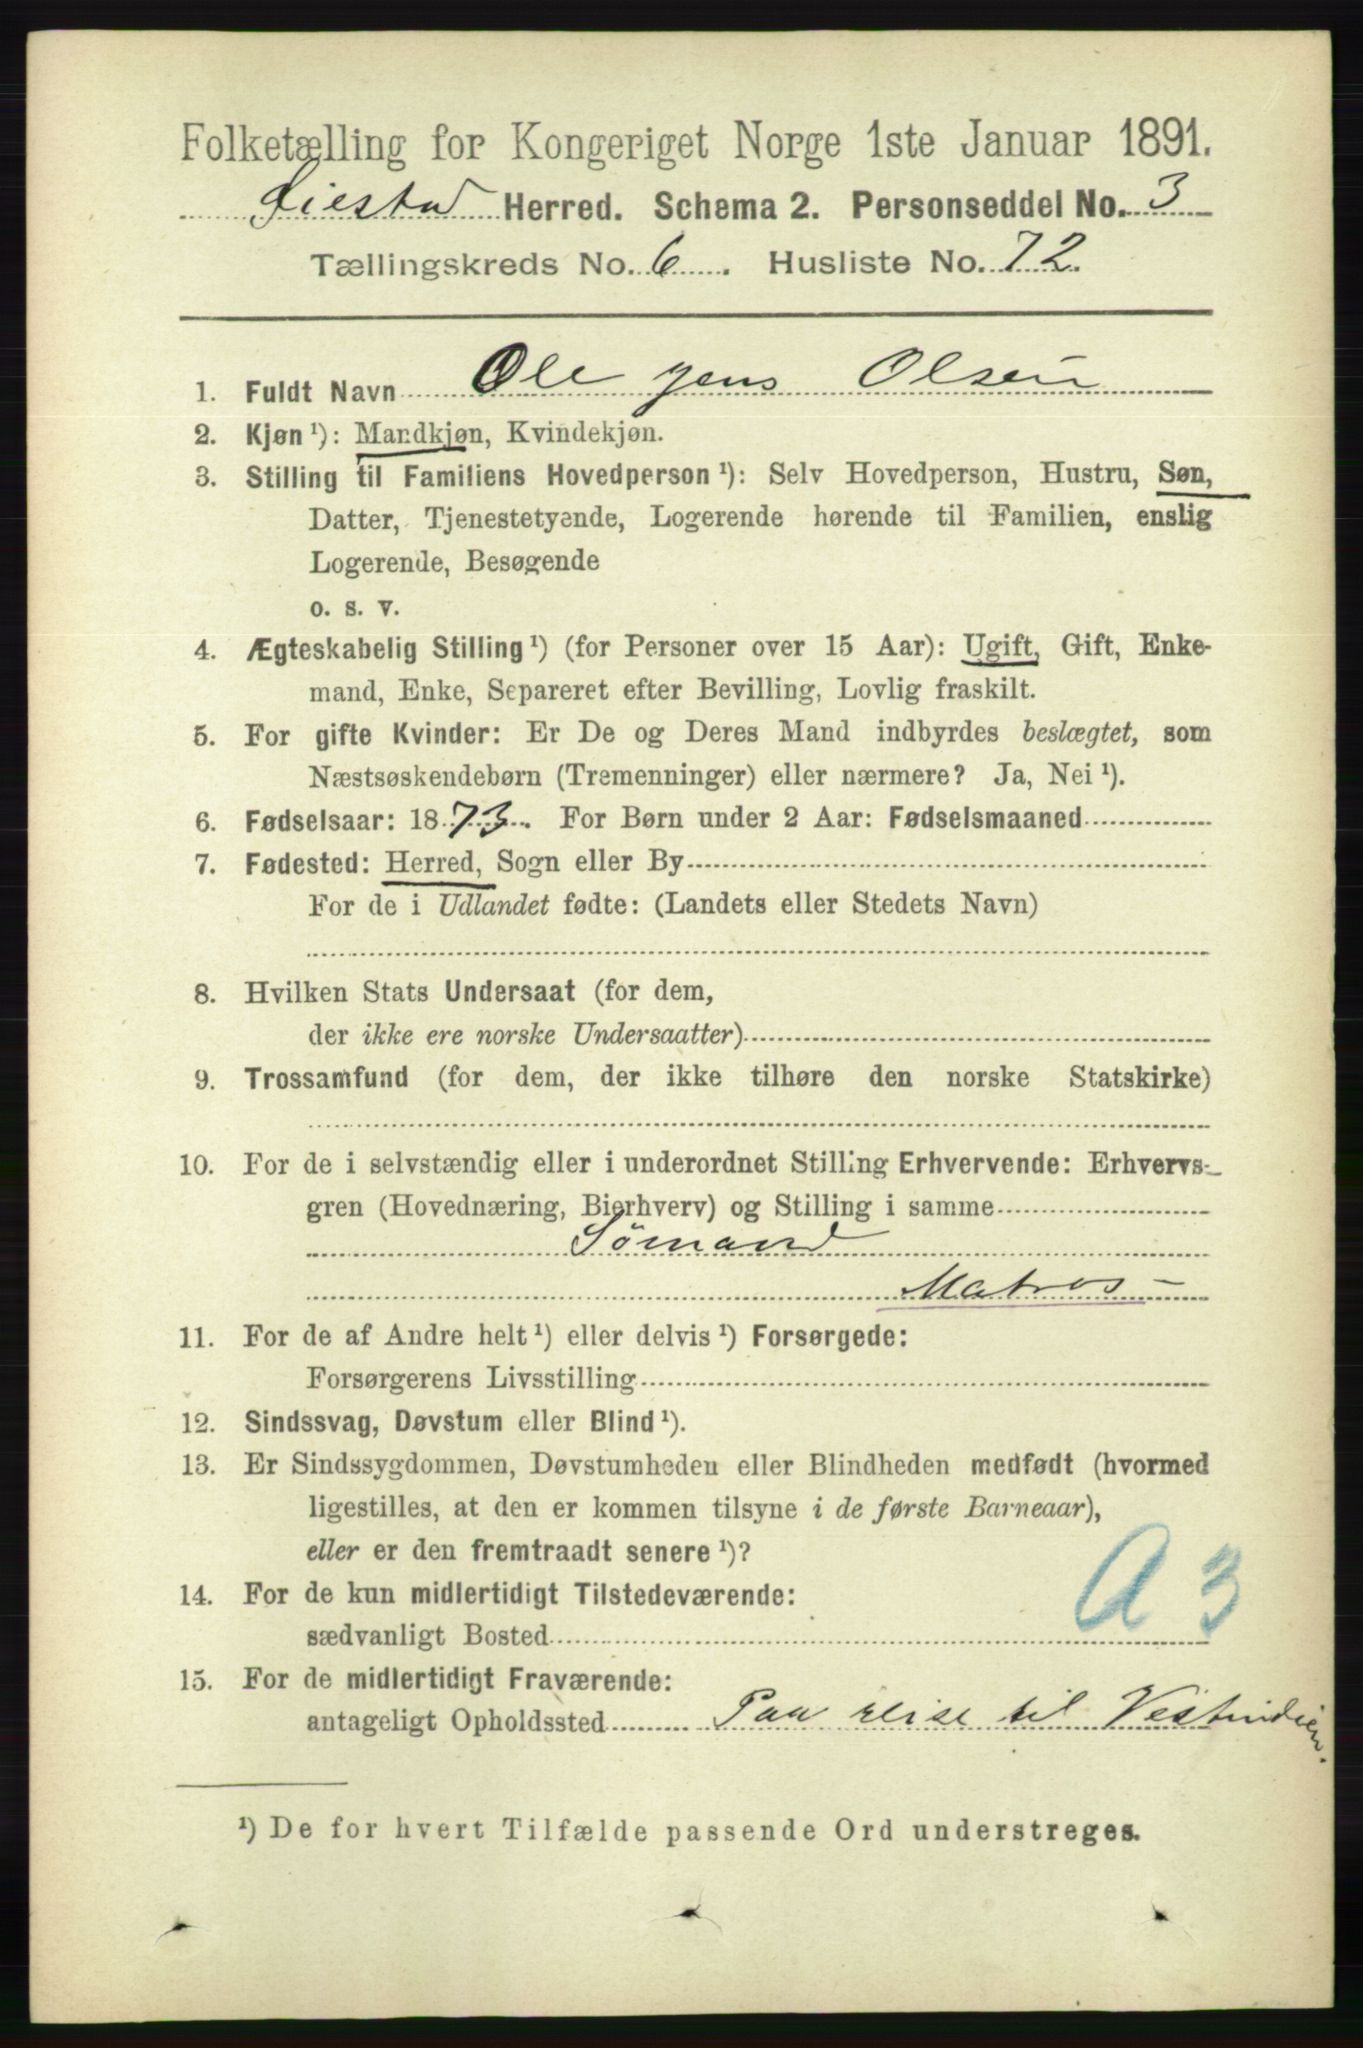 Folketælling for Kongeriget Norge 1ste Januar 1891.
Øiestad Herred. Schema 2. Personseddel No. 3
Tællingskreds No. 6. Husliste No. 72.
1. Fuldt Navn Ole Jens Olsen
2. Kjøn ¹): Mandkjøn, Kvindekjøn.
3. Stilling til Familiens Hovedperson ¹): Selv Hovedperson, Hustru, Søn,
Datter, Tjenestetyende, Logerende hørende til Familien, enslig
Logerende, Besøgende
o. s. v.
4. Ægteskabelig Stilling ¹) (for Personer over 15 Aar): Ugift, Gift, Enke-
mand, Enke, Separeret efter Bevilling, Lovlig fraskilt.
5. For gifte Kvinder: Er De og Deres Mand indbyrdes beslægtet, som
Næstsøskendebørn (Tremenninger) eller nærmere? Ja, Nei ¹).
6. Fødselsaar: 1873. For Børn under 2 Aar: Fødselsmaaned
7. Fødested: Herred, Sogn eller By
For de i Udlandet fødte: (Landets eller Stedets Navn)
8. Hvilken Stats Undersaat (for dem,
der ikke ere norske Undersaatter)
9. Trossamfund (for dem, der ikke tilhøre den norske Statskirke)
10. For de i selvstændig eller i underordnet Stilling Erhvervende: Erhvervs-
gren (Hovednæring, Bierhverv) og Stilling i samme
Sömand
Matros –
11. For de af Andre helt ¹) eller delvis ¹) Forsørgede:
Forsørgerens Livsstilling
12. Sindssvag, Døvstum eller Blind ¹).
13. Er Sindssygdommen, Døvstumheden eller Blindheden medfødt (hvormed
ligestilles, at den er kommen tilsyne i de første Barneaar),
eller er den fremtraadt senere ¹)?
A 3
14. For de kun midlertidigt Tilstedeværende:
sædvanligt Bosted
15. For de midlertidigt Fraværende:
antageligt Opholdssted Paa reise til Vestindien.
¹) De for hvert Tilfælde passende Ord understreges.